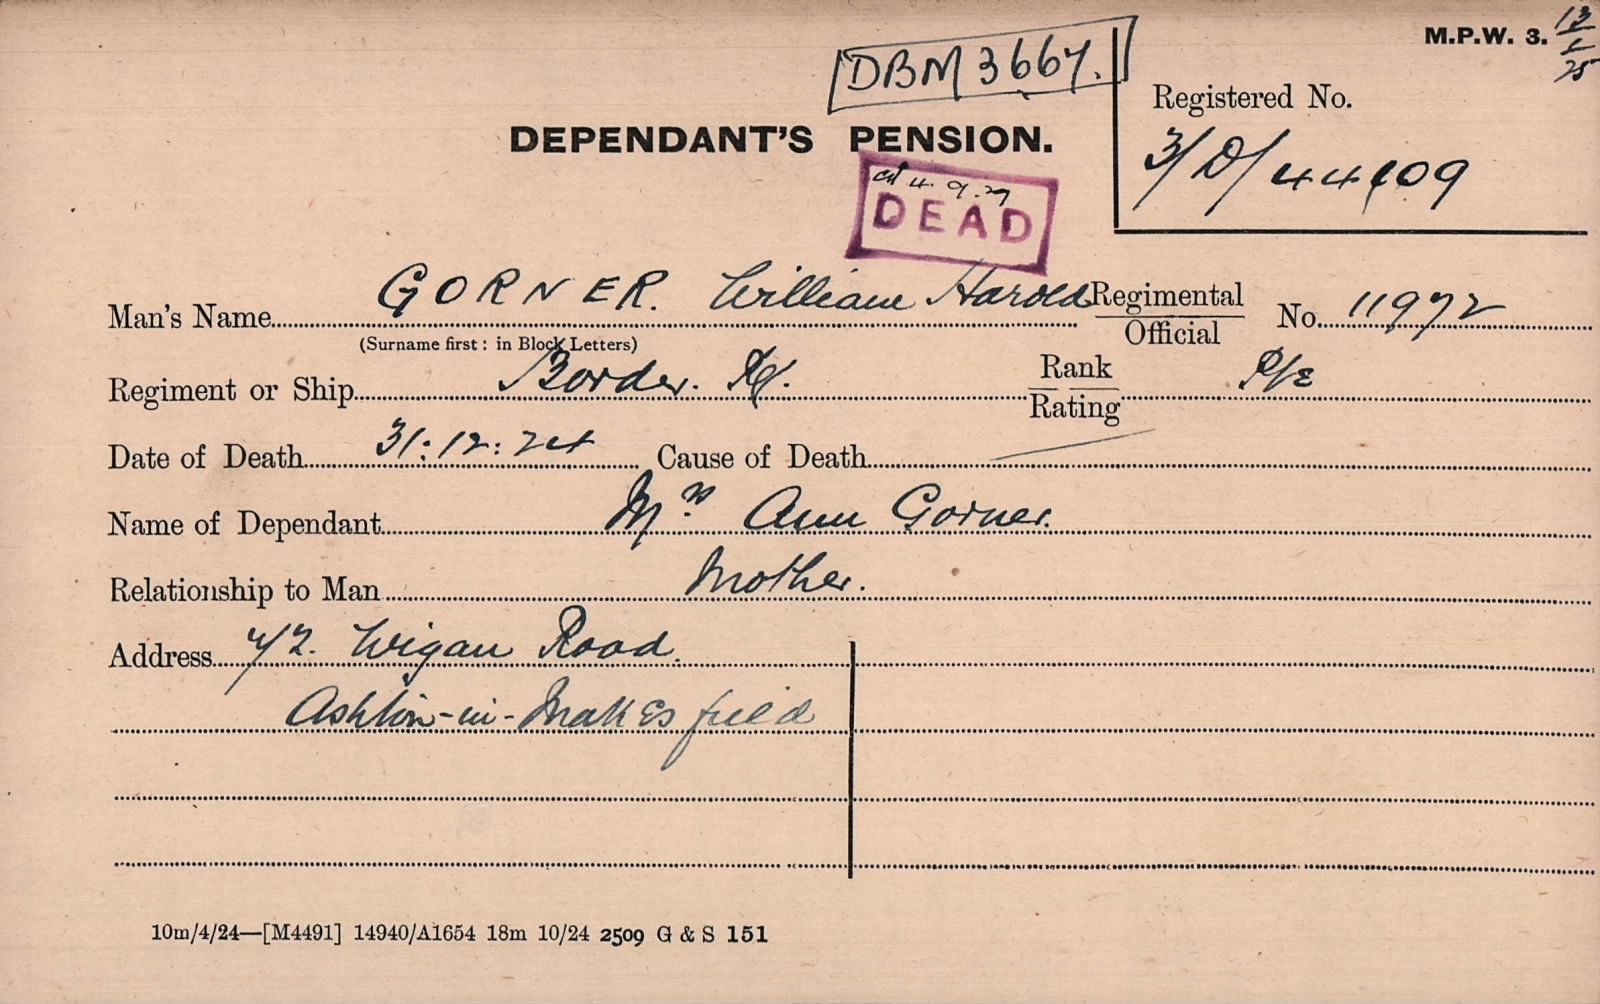 M.P.W. 3. 13/1/25
DBM 3667.
Registered No.
3/D/44609
DEPENDANT'S PENSION.
at 4.9.29
DEAD
Man's Name GORNER. William Harold Regimental/Official No. 11972
(Surname first: in Block Letters)
Regiment or Ship Border. Rg. Rank/Rating Pte
Date of Death 31:12:24 Cause of Death
Name of Dependant Mrs Ann Gorner.
Relationship to Man Mother.
Address 72. Wigan Road.
Ashton-in-Makesfield
10m/4/24—[M4491] 14940/A1654 18m 10/24 2509 G & S 151